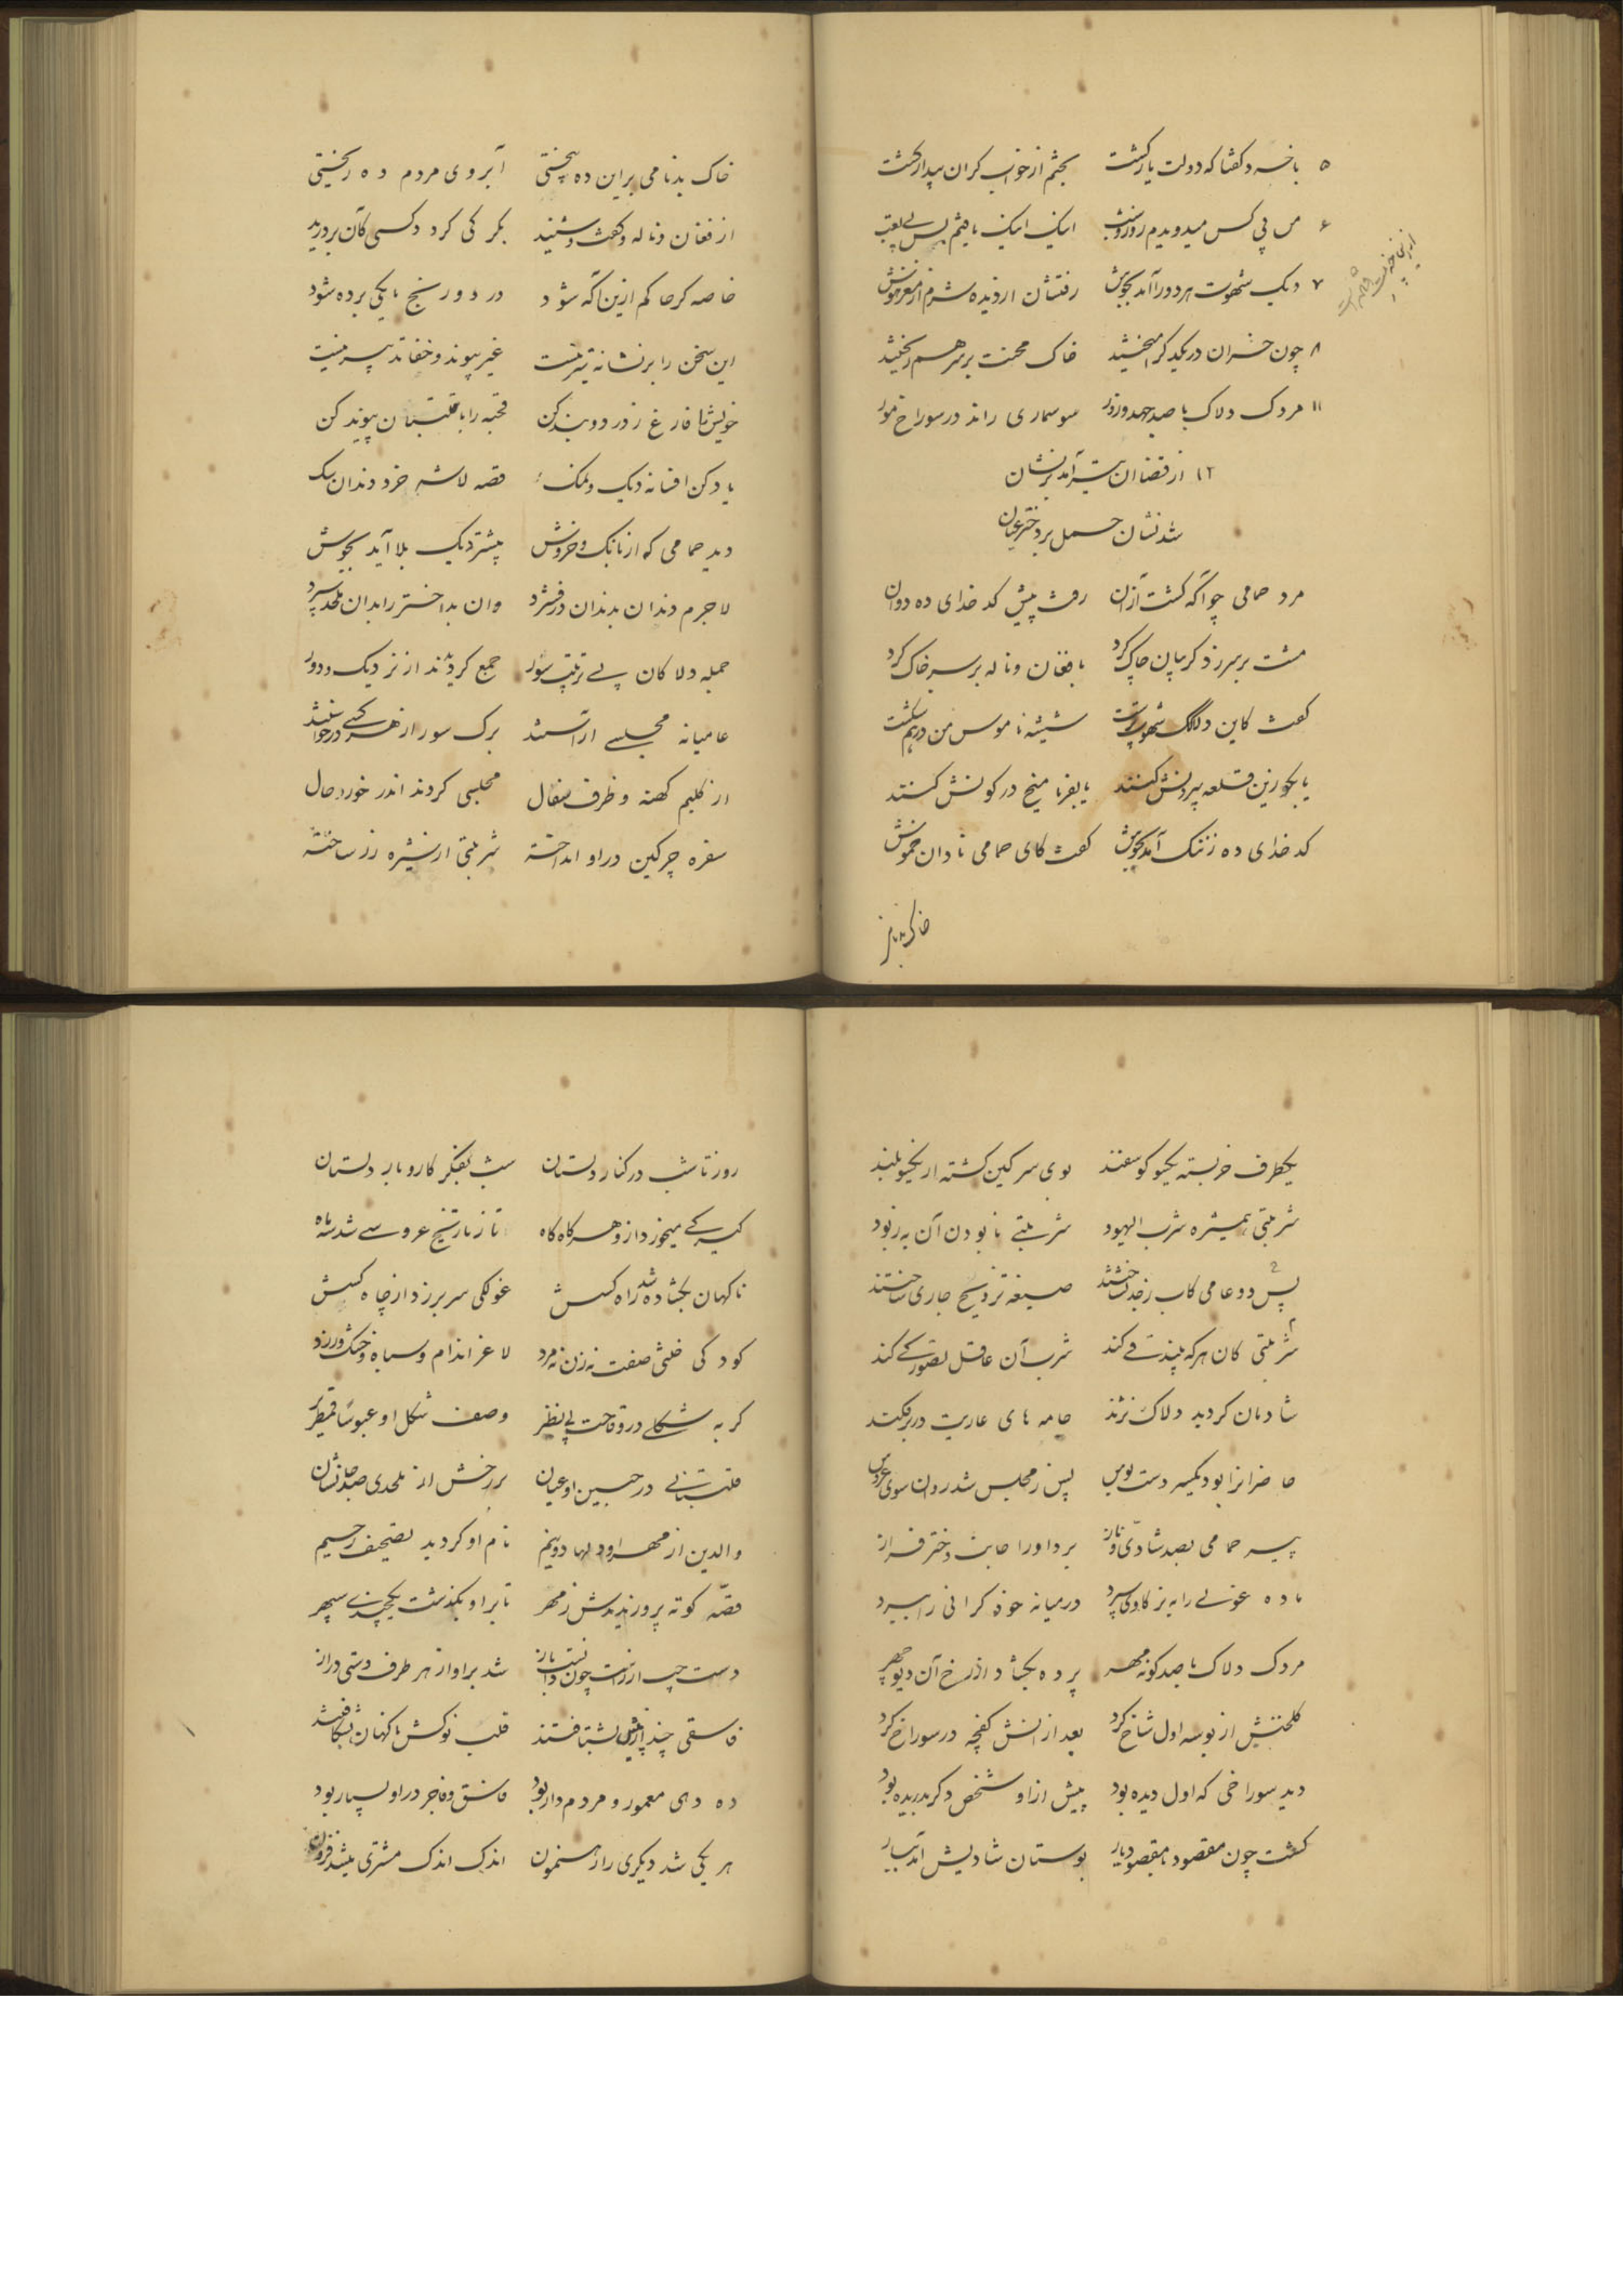 ۵ با خود گفتا که دولت یار گشت بختم از خواب گران بیدار گشت
۶ من پی کس میدویدم روز و شب اینک اینک یافتم بس بی تعب
۷ دیگ شهوت هر دو را آمد بجوش رفتشان از دیده شرم از مغز هوش
۸ چون خران در یکدگر آمیختند خاک محنت بر سر هم ریختند
۱۱ مردک دلاک با صد جهد و زور سوسماری راند در سوراخ مور
۱۲ از قضا آن تیر آمد بر نشان
شد نشان حمل بر دختر عیان
مرد حمامی چو آگه گشت از آن رفت پیش کدخدای ده دوان
مشت بر سر زد گریبان چاک کرد با فغان و ناله بر سر خاک کرد
گفت کاین دلاک شهوت پرست شیشه ناموس من درهم شکست
یا بگو زین قلعه بیرونش کنند یا بفرما میخ در کونش کنند
کدخدای ده ز ننگ آمد بجوش گفت کای حمامی نادان خموش
خاک بدنامی
خاک بدنامی بر این ده بیختی آبروی مردم ده ریختی
از فغان و ناله و گفت و شنید بکر کی گردد کسی کان بر درید
خاصه گر حاکم ازین آگه شود در دو رنج مایگی برده شود
این سخن را بر نشانه تیر نیست غیر پیوند و خفا تدبیر نیست
خویش را فارغ ز درد و بند کن قحبه را با قلتبان پیوند کن
یاد کن افسانه دیک و نمک قصه لاشه خر و دندان سگ
دید حمامی که از بانگ و خروش بیشتر دیک بلا آید بجوش
لاجرم دندان بدندان در فشرد وان بداختر را بدان ملحد سپرد
جمله دلاکان پی ترتیب سور جمع گردیدند از نزدیک و دور
عامیانه مجلسی آراستند برگ سور از هر کسی درخواستند
از گلیم کهنه و ظرف سفال مجلسی کردند اندر خورد حال
سفره چرکین در او انداخته شربتی از شیره رز ساخته
یکطرف خر بسته یکسو گوسفند بوی سرگین گشته از یکسو بلند
شربتی همشیره شرب الیهود شربتی نابودن آن به ز بود
پس دو عامی کاب رز انداختند صیغه تزویج جاری ساختند
شربتی کان هر که بیند قی کند شرب آن عاقل تصور کی کند
شادمان گردید دلاک نژند جامه های عاریت در بر فکند
حاضرانرا بود یکسر دست بوس پس ز مجلس شد روان سوی عروس
پیر حمامی بصد شادی و ناز برد او را جانب دختر فراز
ماده غولی را به نر گاوی سپرد در میانه خود گرانی را ببرد
مردک دلاک با صد گونه مهر پرده بگشاد از رخ آن دیو چهر
گلخنیش از بوسه اول شاخ کرد بعد از آنش کفچه در سوراخ کرد
دید سوراخی که اول دیده بود پیش از او شخص دگر دریده بود
گشت چون مقصود با مقصود یار بوستان شادیش آمد ببار
روز تا شب در کنار دلستان شب بفکر کار و بار دلستان
کیر کی میخورد از وهر گاه گاه تا ز تاریخ عروسی شد سه ماه
ناگهان بگشاده شد راه کسش غولکی سر بر زد از چاه کسش
کودکی خنثی صفت نه زن نه مرد لاغر اندام و سیاه و خشک و زرد
گربه شکلی در وقاحت بی نظیر وصف شکل او عبوسا قمطریر
قلتبانی در جبین او عیان بر رخش از ملحدی صد جا نشان
والدین از مهر او دلها دو نیم نام او گردید تصحیف رحیم
قصه کوته پروریدندش ز مهر تا بر او بگذشت یکچندی سپهر
دست چپ از راست چون دانست باز شد بر او از هر طرف دستی دراز
فاسقی چند از پیش بشتافتند قلب نوکش ناگهان بشکافتند
ده دهی معمور و مردم دار بود فاسق و فاجر در او بسیار بود
هر یکی شد دیگری را رهنمون اندک اندک مشتری میشد فزون